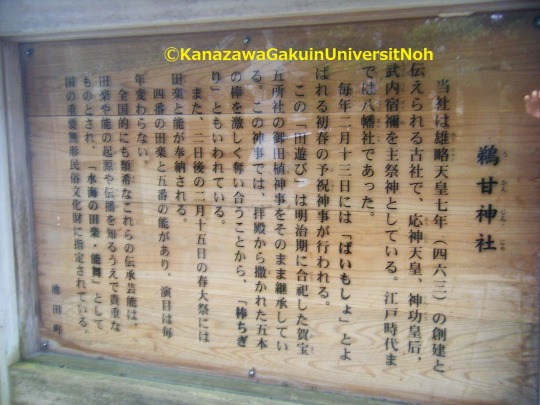 ©KanazawaGakuinUniversitNoh
鵜甘神社
うかんじんじゃ
当社は雄略天皇七年(四六三)の創建と
伝えられる古社で、応神天皇、神功皇后、
武内宿禰を主祭神としている。江戸時代ま
では八幡社であった。
毎年二月十三日には「ばいもしょ」とよ
ばれる初春の予祝神事が行われる。
この「田遊び」は明治期に合祀した賀宝
五所社の御田植神事をそのまま継承してい
る。この神事では、拝殿から撒かれた五本
の棒を激しく奪い合うことから、「棒ちぎ
り」ともいわれている。
また、二日後の二月十五日の春大祭には
田楽と能が奉納される。
四番の田楽と五番の能があり、演目は毎
年変わらない。
全国的にも類希なこれらの伝承芸能は、
田楽や能の起源や伝播を知るうえで貴重な
ものとされ、「水海の田楽・能舞」として
国の重要無形民俗文化財に指定されている。
池田町